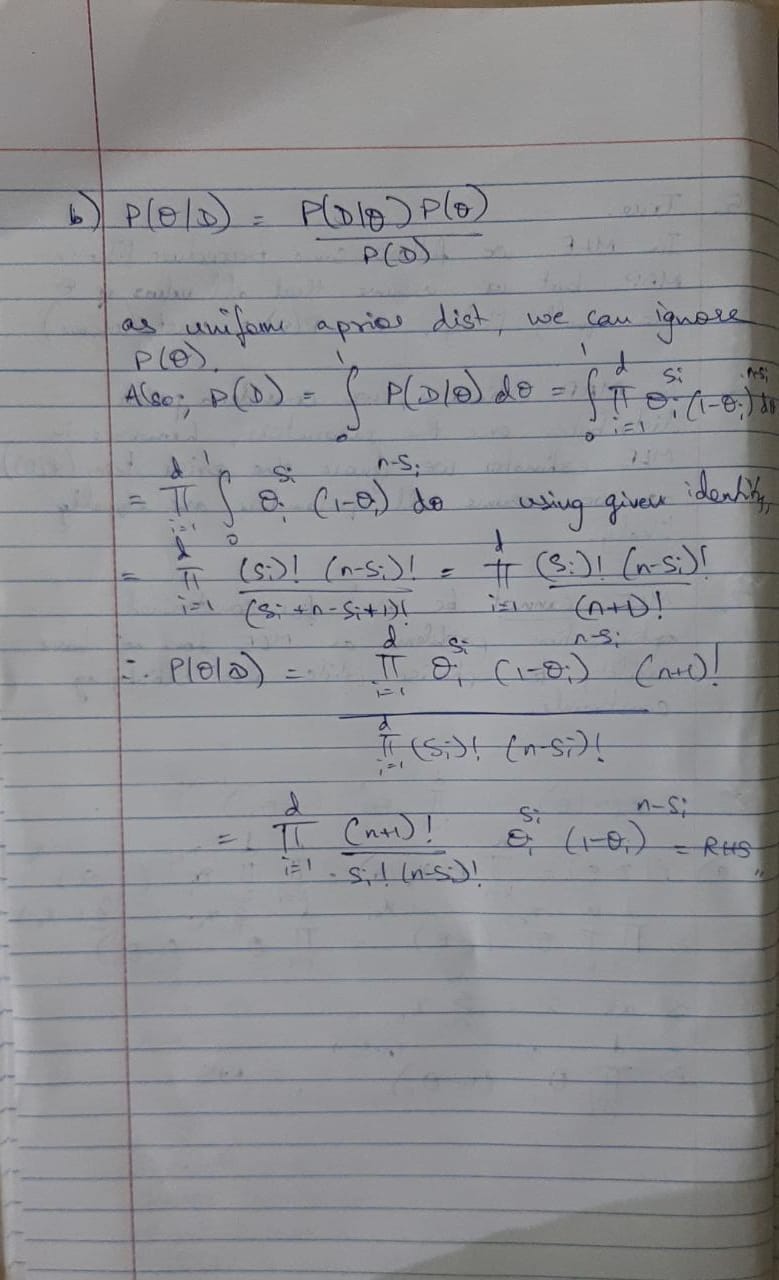 b) P(θ/D) = P(D/θ) P(θ)
P(D)
as uniform aprior dist, we can ignore
P(θ).
Also; P(D) = ∫₀¹ P(D/θ) dθ = ∫₀¹ ∏ᵢ₌₁ᵈ θᵢ^Sᵢ (1-θᵢ)^n-Sᵢ dθ
= ∏ᵢ₌₁ᵈ ∫₀¹ θᵢ^Sᵢ (1-θᵢ)^n-Sᵢ dθ using given identity,
= ∏ᵢ₌₁ᵈ (Sᵢ)! (n-Sᵢ)! / (Sᵢ+n-Sᵢ+1)! = ∏ᵢ₌₁ᵈ (Sᵢ)! (n-Sᵢ)! / (n+1)!
∴ P(θ/D) = ∏ᵢ₌₁ᵈ θᵢ^Sᵢ (1-θᵢ)^n-Sᵢ (n+1)!
∏ᵢ₌₁ᵈ (Sᵢ)! (n-Sᵢ)!
= ∏ᵢ₌₁ᵈ (n+1)! / Sᵢ! (n-Sᵢ)! θᵢ^Sᵢ (1-θᵢ)^n-Sᵢ = RHS,,